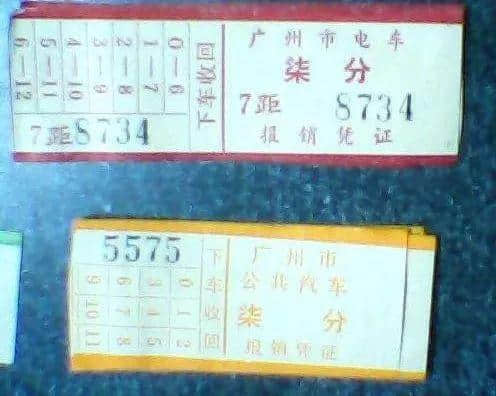 6—12
5—11
4—10
3—9
2—8
1—7
0—6
下车收回
7距8734
广州市电车
柒分
7距 8734
报销凭证
5575
9 6 3 0
10 7 4 1
11 8 5 2
下车收回
广州市
公共汽车
柒 分
报销凭证